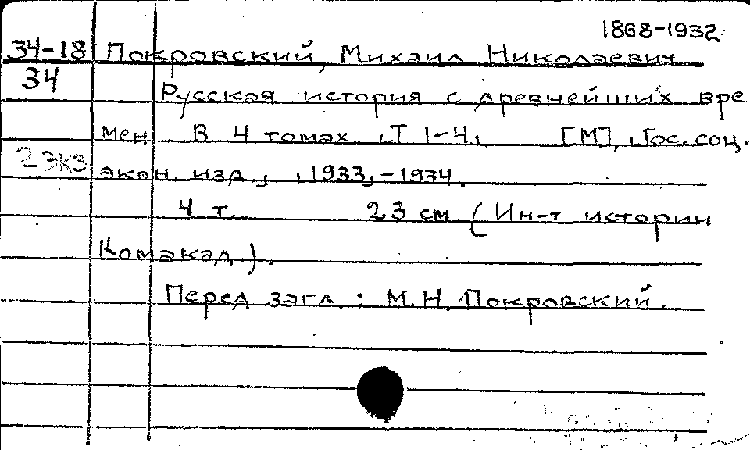 1868-1932
34-18 Покровский, Михаил Николаевич
34
Русская история с древнейших вре
мен В 4 томах [Т 1-4] [М], [Гос. соц.
2 экз экон. изд., [1933]-1934.
4 т. 23 см (Ин-т истории
Комакад.).
Перед загл: М.Н. Покровский.